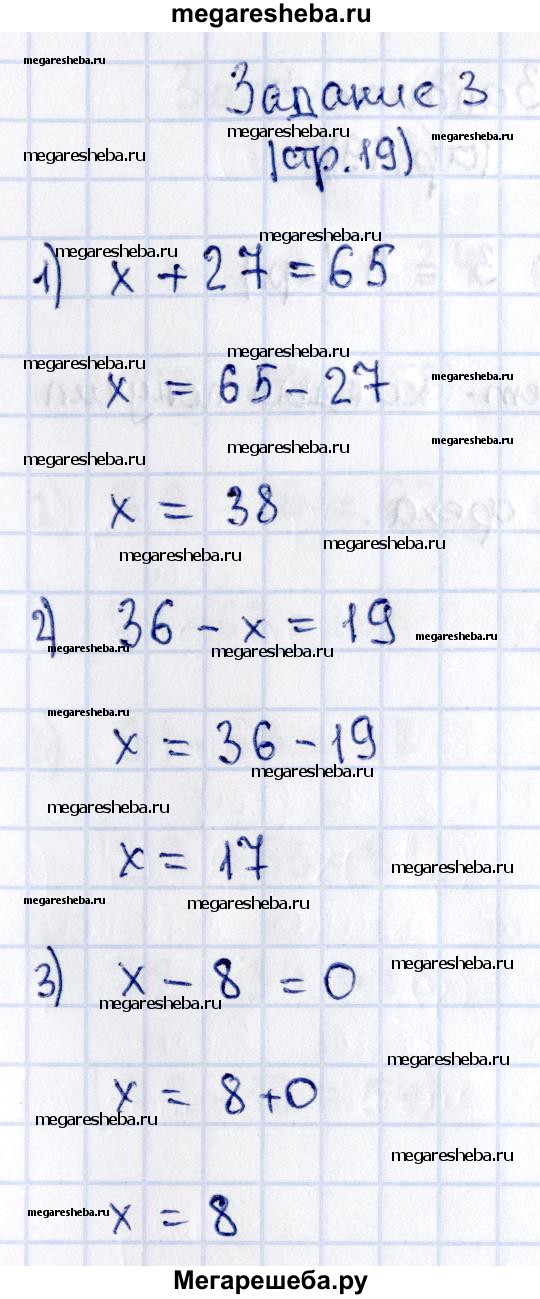 megaresheba.ru
megaresheba.ru
Задание 3
megaresheba.ru megaresheba.ru megaresheba.ru
(стр.19)
megaresheba.ru megaresheba.ru
1) x + 27 = 65
megaresheba.ru megaresheba.ru megaresheba.ru
x = 65 - 27
megaresheba.ru megaresheba.ru megaresheba.ru
x = 38
megaresheba.ru megaresheba.ru
2) 36 - x = 19
megaresheba.ru megaresheba.ru megaresheba.ru
megaresheba.ru
x = 36 - 19
megaresheba.ru
megaresheba.ru
x = 17
megaresheba.ru
megaresheba.ru megaresheba.ru
3) x - 8 = 0
megaresheba.ru
megaresheba.ru
megaresheba.ru
x = 8 + 0
megaresheba.ru
megaresheba.ru
megaresheba.ru
x = 8
Мегарешеба.ру